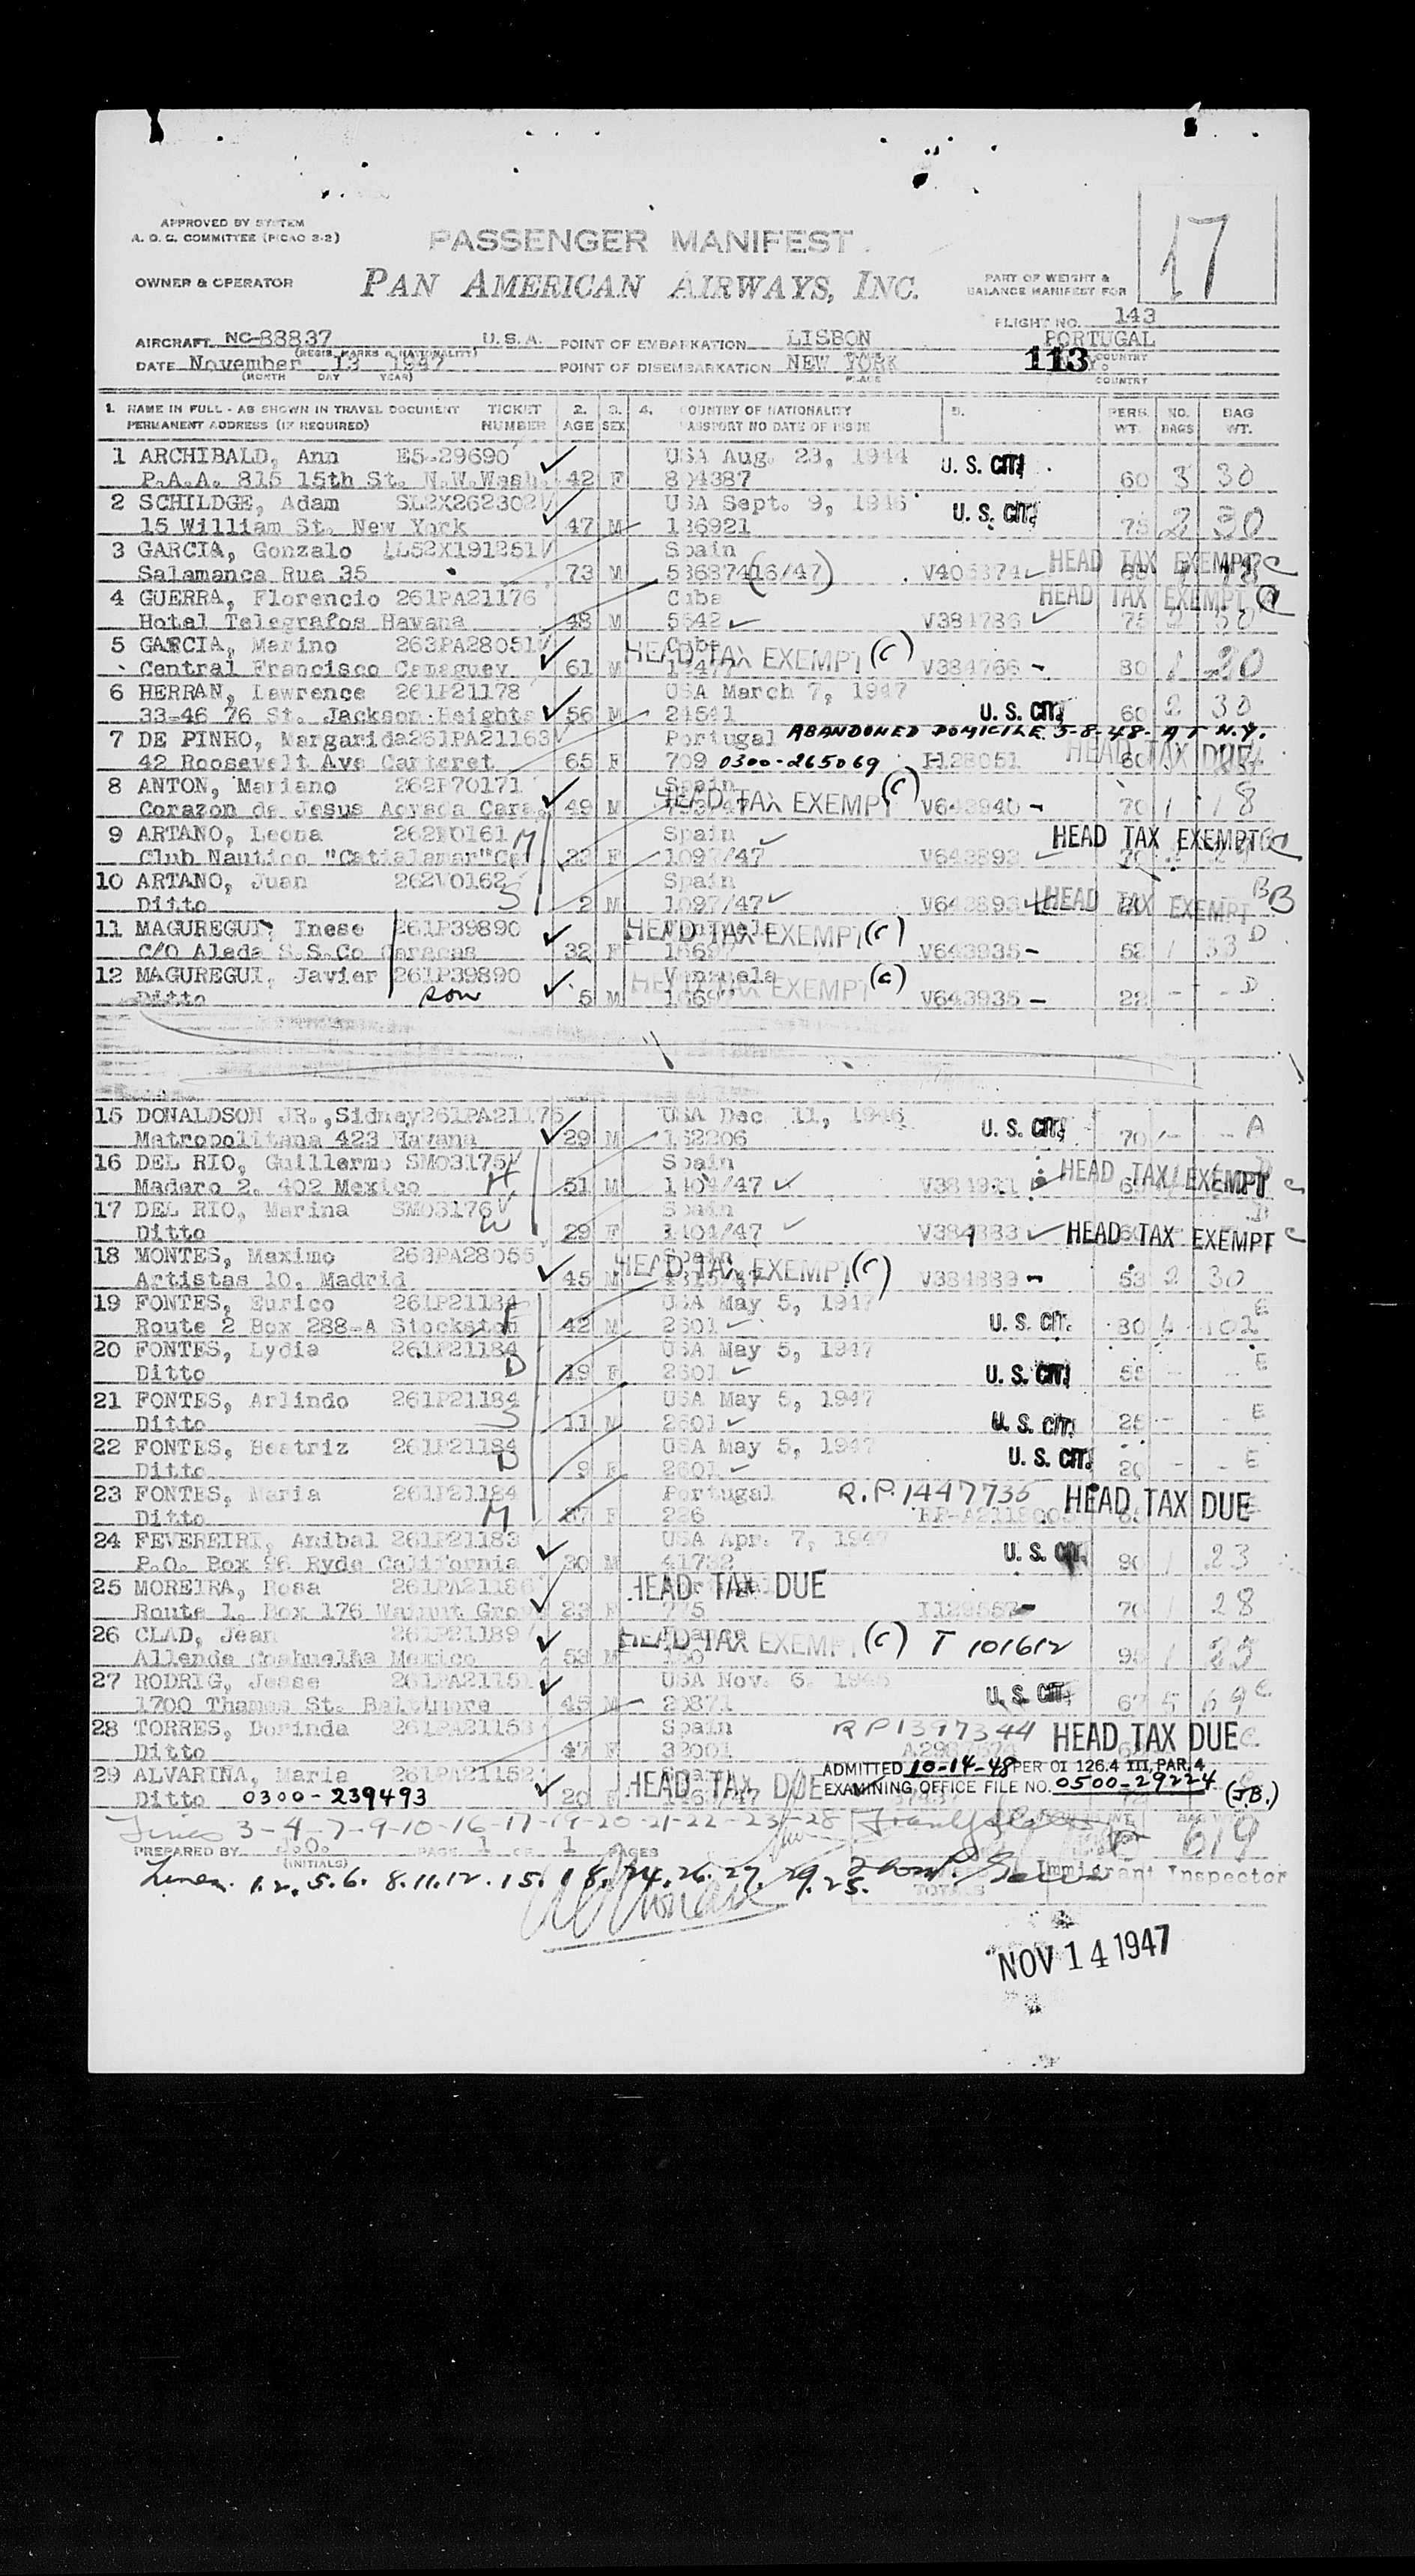 APPROVED BY SYSTEM
A. O. C. COMMITTEE (PICAO 2-2)
PASSENGER MANIFEST
17
OWNER & OPERATOR PAN AMERICAN AIRWAYS, INC.
PART OF WEIGHT &
BALANCE MANIFEST FOR
FLIGHT NO. 143
AIRCRAFT NC-88837 U.S.A. POINT OF EMBARKATION LISBON PORTUGAL
(REGIS. MARKS & NATIONALITY) COUNTRY
DATE November 13 1947 POINT OF DISEMBARKATION NEW YORK 113
(MONTH DAY YEAR) PLACE COUNTRY
1. NAME IN FULL - AS SHOWN IN TRAVEL DOCUMENT TICKET 2. 3. 4. COUNTRY OF NATIONALITY 5. PERS. NO. BAG
PERMANENT ADDRESS (IF REQUIRED) NUMBER AGE SEX PASSPORT NO DATE OF ISSUE WT. BAGS WT.
1 ARCHIBALD, Ann E5-29690 USA Aug. 23, 1944 U. S. CIT.
P.A.A. 815 15th St. N.W.Wash. 42 F 804387 60 3 30
2 SCHILDGE, Adam SL2X262302 USA Sept. 9, 1946 U. S. CIT.
15 William St. New York 47 M 136921 75 2 30
3 GARCIA, Gonzalo LL52X191251 Spain HEAD TAX EXEMPT C
Salamanca Rua 35 73 M 53687416/47) V405374
4 GUERRA, Florencio 261PA21176 Cuba HEAD TAX EXEMPT
Hotel Telegrafos Havana 48 M 5642 V384736 75 2 50
5 GARCIA, Marino 263PA28051 Cuba HEAD TAX EXEMPT (C)
Central Francisco Camaguey 61 M V384766 80 1 20
6 HERRAN, Lawrence 261P21178 USA March 7, 1947
33-46 76 St. Jackson Heights 56 M 24541 U. S. CIT. 60 2 30
7 DE PINHO, Margarida 261PA21163 Portugal ABANDONED DOMICILE 5-8-48- AT N.Y.
42 Roosevelt Ave Carteret 65 F 709 0300-265069 I-128051 HEAD TAX DUE
8 ANTON, Mariano 262P70171 Spain HEAD TAX EXEMPT (C)
Corazon de Jesus Aovada Cara 49 M V643940 70 1 18
9 ARTANO, Leona 262V0161 M Spain HEAD TAX EXEMPT C
Club Nautico "Catialamar" 33 F 1097/47 V643893
10 ARTANO, Juan 262V0162 S Spain HEAD TAX EXEMPT B
Ditto 2 M 1097/47 V643893
11 MAGUREGUI, Inese 261P39890 HEAD TAX EXEMPT (C) D
C/O Aleda S.S.Co Caracas 32 F V643935 52 1 33
12 MAGUREGUI, Javier 261P39890 HEAD TAX EXEMPT (C) D
Ditto son 5 M V643935 22
15 DONALDSON JR.,Sidney 261PA21175 USA Dec 11, 1946 U. S. CIT. A
Matropolitana 423 Havana 29 M 162206 70
16 DEL RIO, Guillermo SM03175 H Spain HEAD TAX EXEMPT C
Madero 2. 402 Mexico 51 M 1404/47
17 DEL RIO, Marina SM03176 W Spain D
Ditto 29 F 1404/47 HEAD TAX EXEMPT C
18 MONTES, Maximo 263PA28055 Spain HEAD TAX EXEMPT (C)
Artistas 10, Madrid 45 M V384889 53 2 30
19 FONTES, Eurico 261P21184 F USA May 5, 1947 E
Route 2 Box 288-A Stockston 42 M 2601 U. S. CIT. 80 4 102
20 FONTES, Lydia 261P21184 D USA May 5, 1947 E
Ditto 19 F 2601 U. S. CIT. 55
21 FONTES, Arlindo 261P21184 S USA May 5, 1947 E
Ditto 11 M 2601 U. S. CIT. 25
22 FONTES, Beatriz 261P21184 D USA May 5, 1947 U. S. CIT. E
Ditto 9 F 2601 20
23 FONTES, Maria 261P21184 M Portugal R.P. 1447735 HEAD TAX DUE
Ditto 37 F 226
24 FEVEREIRI, Anibal 261P21183 USA Apr. 7, 1947 U. S. CIT.
P.O. Box 96 Ryde California 30 M 41732 90 1 23
25 MOREIRA, Rosa 261PA21186 HEAD TAX DUE
Route 1. Box 176 Walnut Grove 23 F 775 70 1 28
26 CLAD, Jean 261P21189 HEAD TAX EXEMPT (C) T 101612
Allende Coahuelha Mexico 53 M 95 1 25
27 RODRIG, Jesse 261PA21151 USA Nov. 6. 1946 U. S. CIT.
1700 Thames St. Baltimore 45 M 20871 67 5 69
28 TORRES, Dorinda 261PA21153 Spain RP1397344 HEAD TAX DUE
Ditto 47 F 32001
29 ALVARINA, Maria 261PA21152 HEAD TAX DUE ADMITTED 10-14-48 PER OI 126.4 III, PAR. 4
Ditto 0300-239493 20 F EXAMINING OFFICE FILE NO. 0500-29224 (J.B.)
Lines 3-4-7-9-10-16-17-19-20-21-22-23-28 619
PREPARED BY J.O. PAGE 1 OF 1 PAGES
(INITIALS)
Lines. 1.2.5.6. 8.11.12.15.18.24.26.27.29.25. Immigrant Inspector
TOTALS
NOV 14 1947